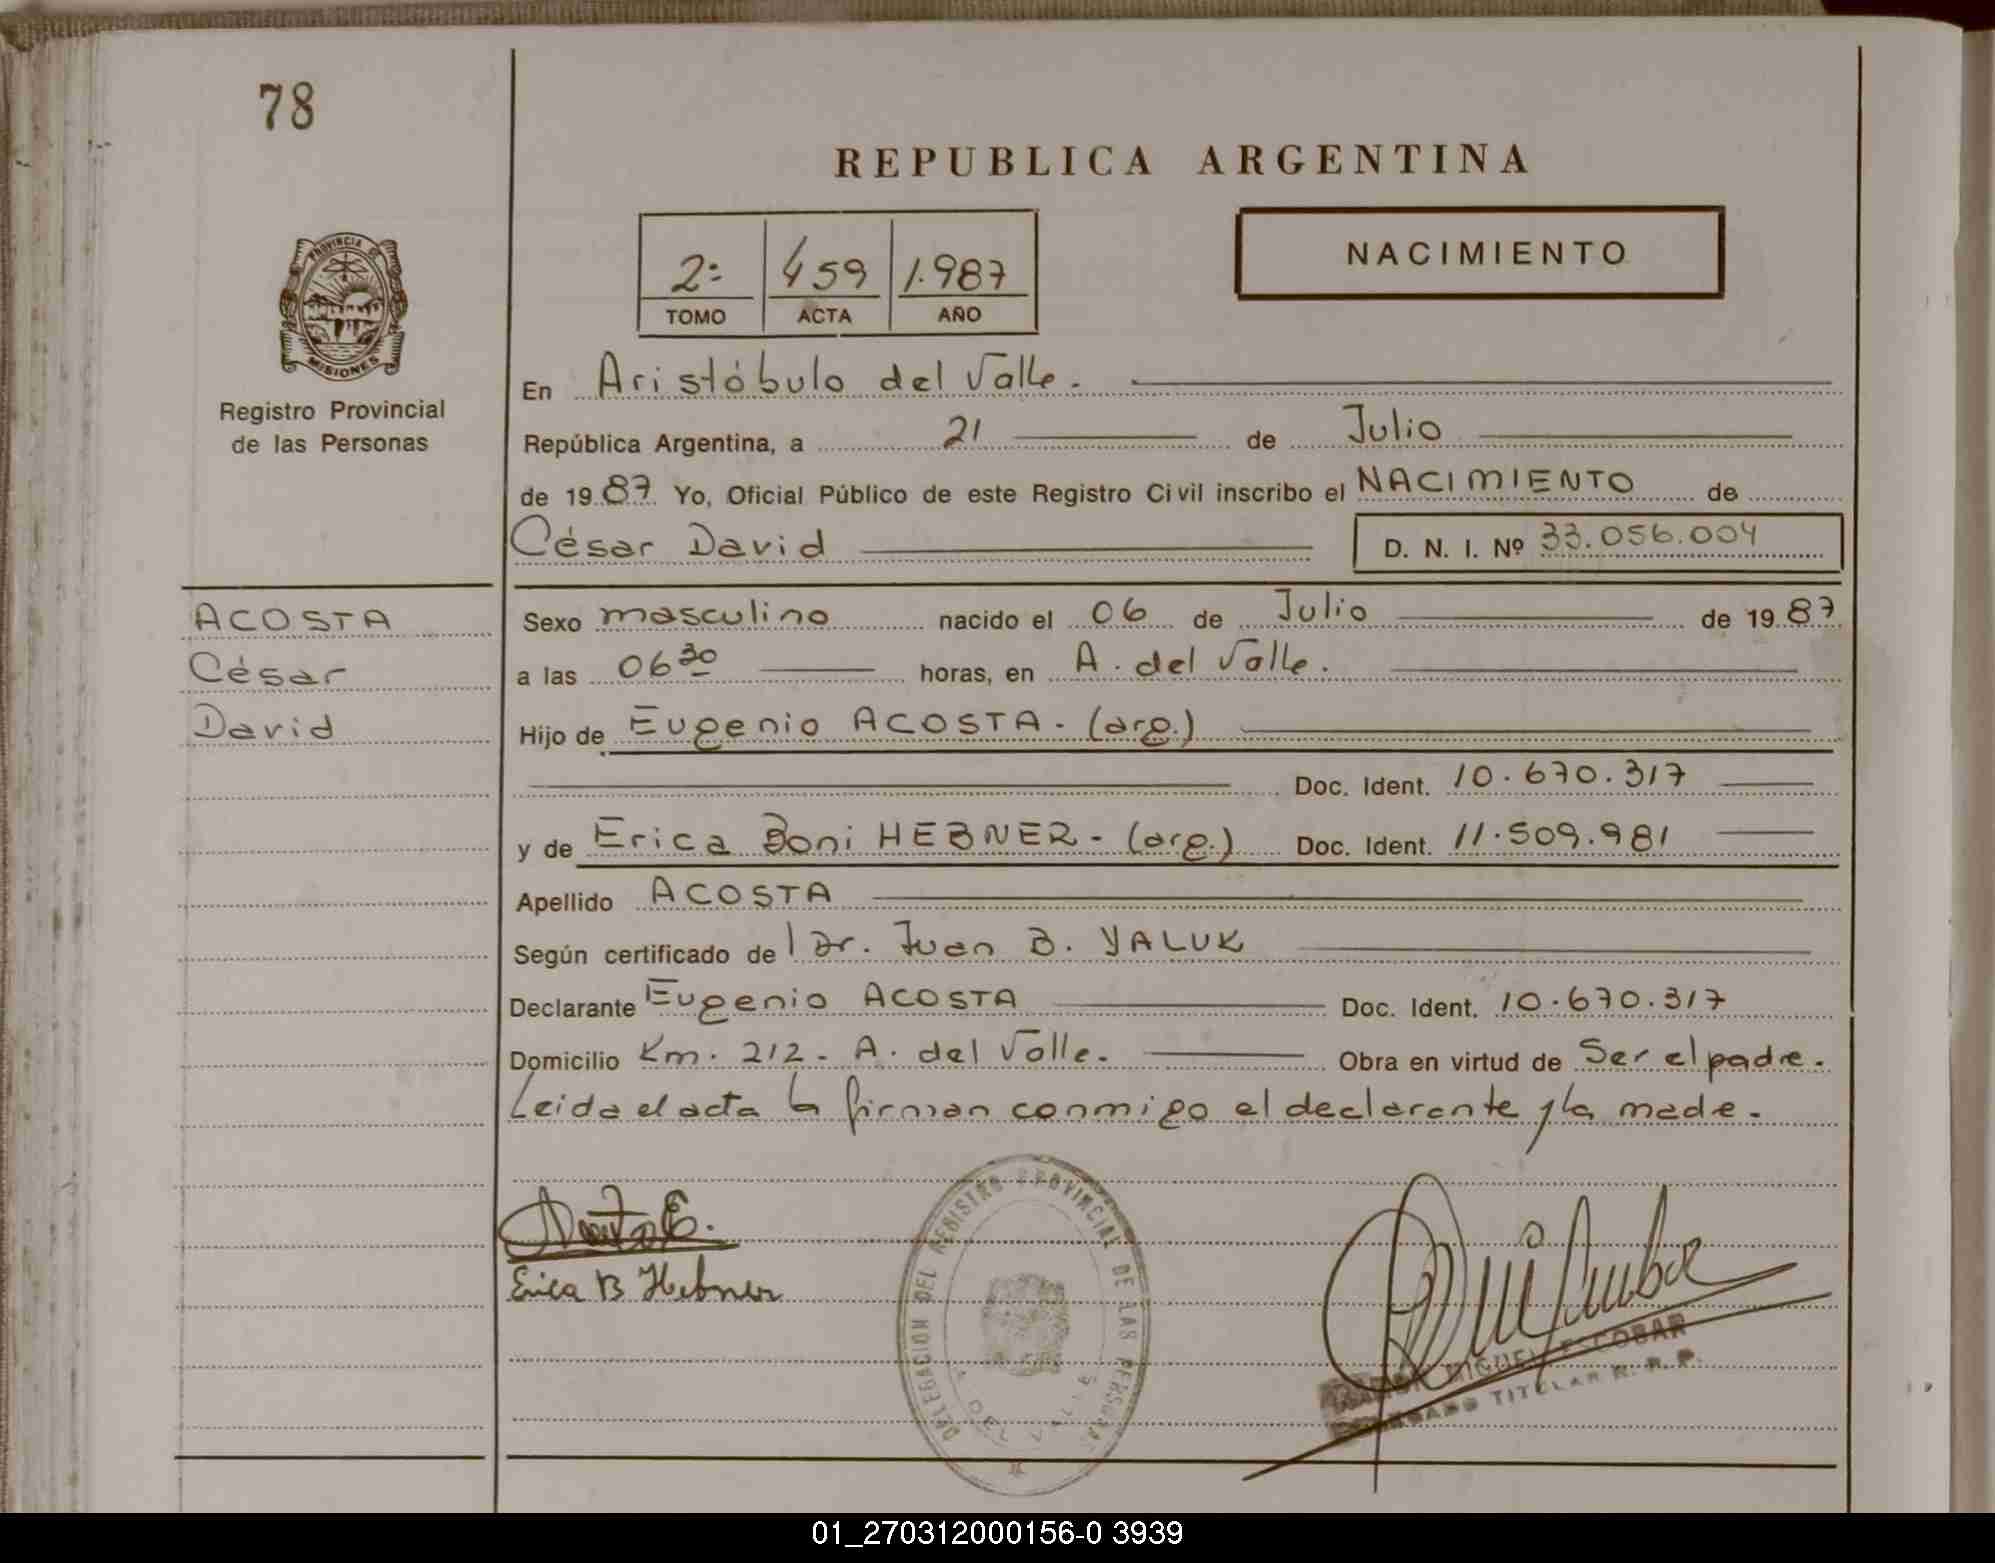 78
REPUBLICA ARGENTINA
2= 459 1.987
TOMO ACTA AÑO
NACIMIENTO
PROVINCIA DE
MISIONES
Registro Provincial
de las Personas
En Aristóbulo del Valle.
República Argentina, a 21 de Julio
de 1987 Yo, Oficial Público de este Registro Civil inscribo el NACIMIENTO de
César David D. N. I. Nº 33.056.004
ACOSTA
César
David
Sexo masculino nacido el 06 de Julio de 1987
a las 06 30 horas, en A. del Valle.
Hijo de Eugenio ACOSTA - (arg.)
Doc. Ident. 10.670.317
y de Erica Boni HEBNER - (arg.) Doc. Ident. 11.509.981
Apellido ACOSTA
Según certificado del Dr. Juan B. YALUK
Declarante Eugenio ACOSTA Doc. Ident. 10.670.317
Domicilio Km. 212 - A. del Valle. Obra en virtud de Ser el padre.
Leida el acta la firman conmigo el declarante y la made.
Erica B Hebner
DELEGACION DEL REGISTRO PROVINCIAL DE LAS PERSONAS
A. DEL VALLE
MIGUEL ESCOBAR
TITULAR R. P. P.
01_270312000156-0 3939